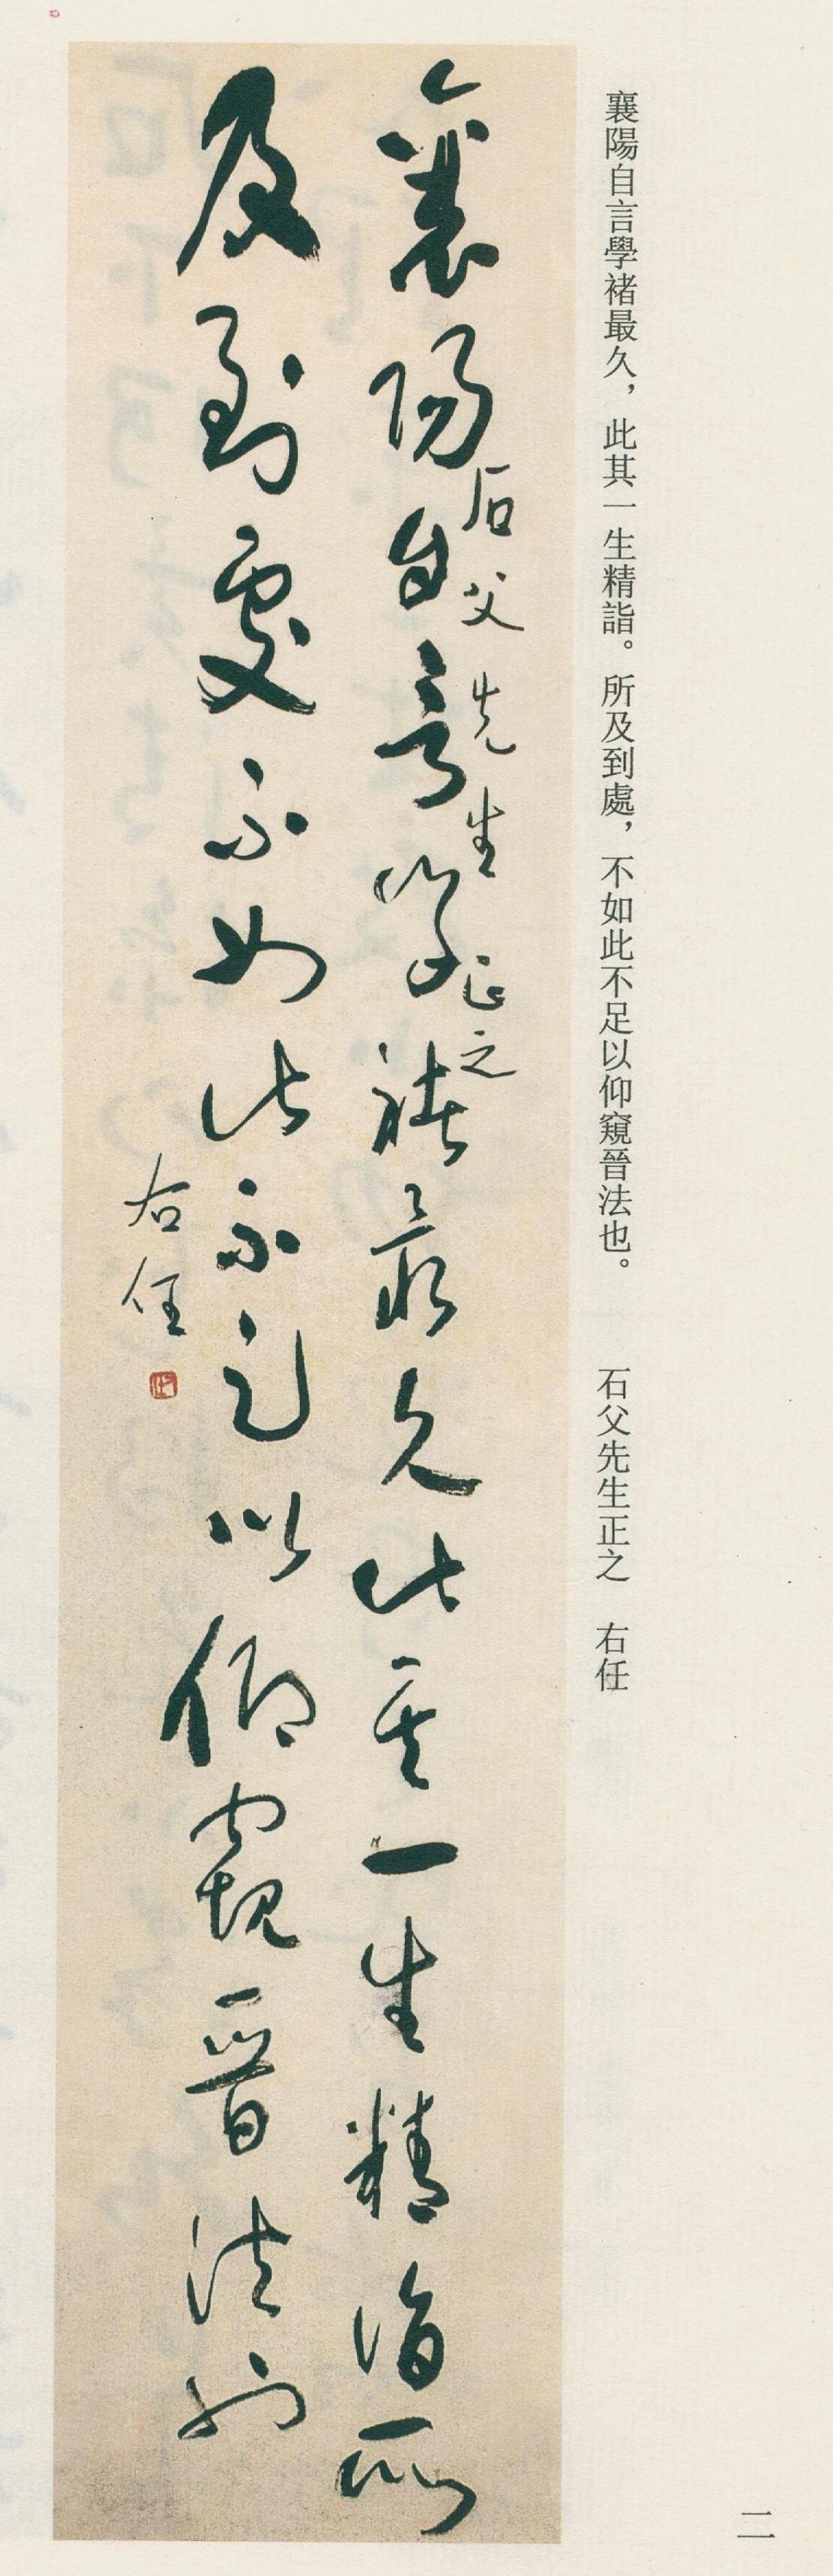 襄陽自言學褚最久，此其一生精詣。所及到處，不如此不足以仰窺晉法也。　石父先生正之　右任
石父先生正之
襄陽自言學褚最久此其一生精詣所
及到處不如此不足以仰窺晉法也
右任
二